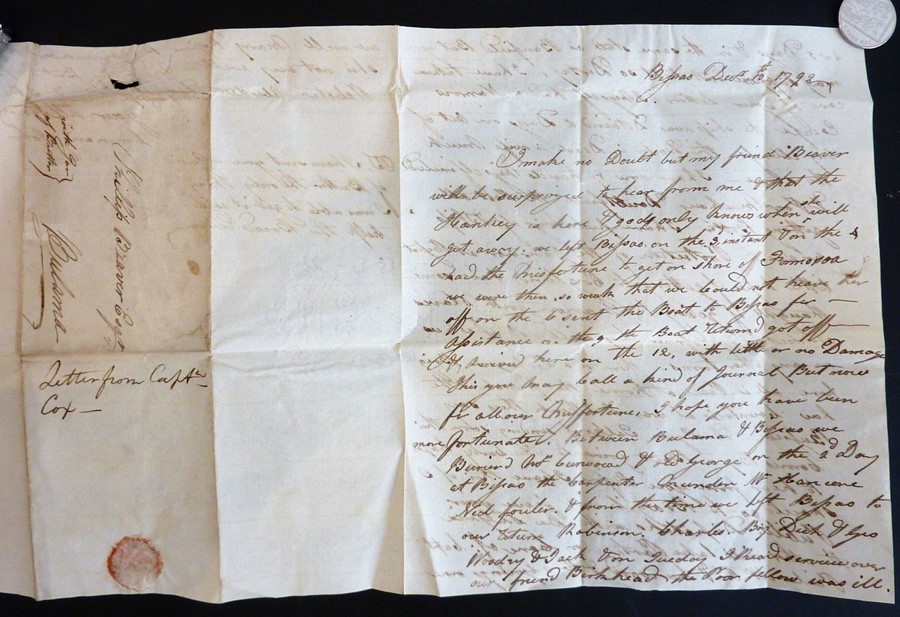 with Pen
of Butter
Phillip Beaver Esqr
Bulama
Letter from Capt
Cox —
Bissao Decr 13th 1792
I make no Doubt but my friend Beaver
will be surprized to hear from me & that the
Hankey is here & gods only knows when will
get away. we left Bissao on the 3 instant & on the 4
had the misfortune to get on shore of
we were then so weak that we Could not heave her
off on the 6 sent the Boat to Bissao for
Assistance on the 9th Boat Returnd got off
& arived here on the 12, with little or no Damage
This you may Call a kind of Journal But now
for all our Missfortunes I hope you have been
more fortunate. Between Bulama & Bissao we
Buried Mr Curwood & old George on the 2d Day
at Bissao the Carpenter Freunder Mr Hancorne
Ned fowler. & from the time we left Bissao to
our Return Robinson. Charles. Big Dick & Geo
Woodry & Jack & on Tuesday I Read service over
our friend Birkhead the Poor fellow was ill.